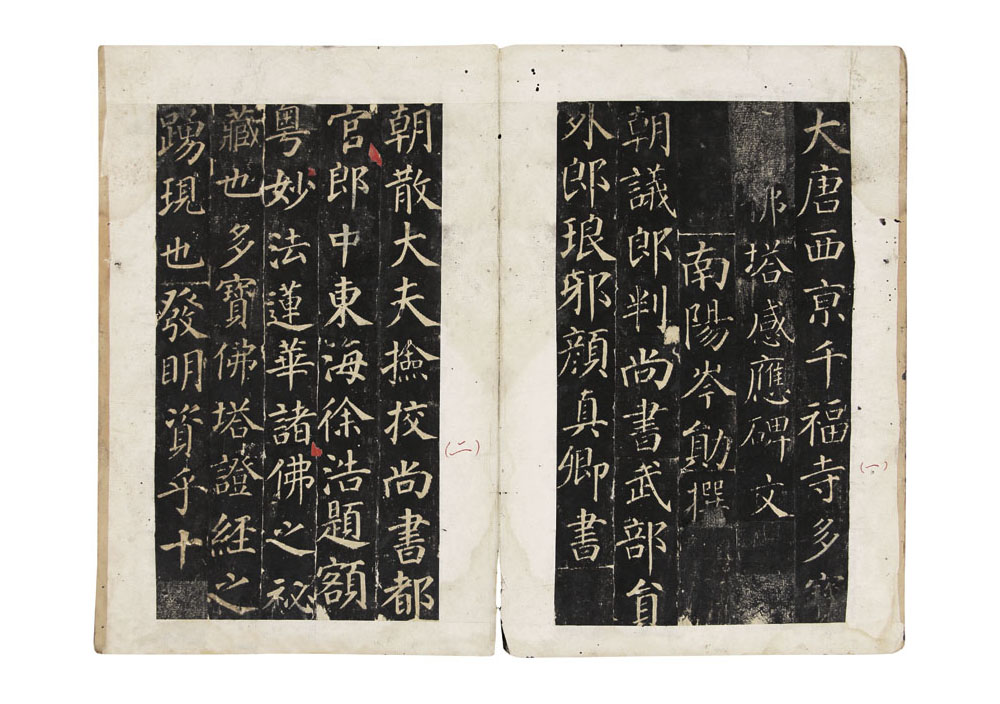 大唐西京千福寺多寶
佛塔感應碑文
南陽岑勛撰
朝議郎判尚書武部員
外郎琅邪顏真卿書
(一)
朝散大夫撿挍尚書都
官郎中東海徐浩題額
粵妙法蓮華諸佛之祕
藏也多寶佛塔證經之
踴現也發明資乎十
(二)